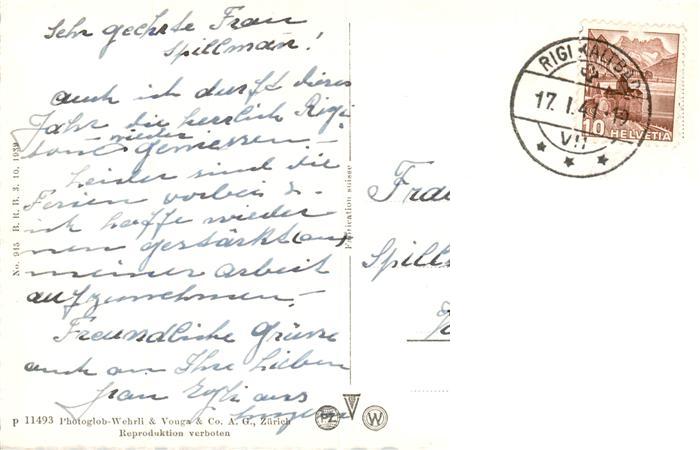 Sehr geehrte Frau
Spillman!
auch ich durfte dieses
Jahr die herrlich Rigi
wieder
geniessen -
Leider sind die
Ferien vorbei &
ich hoffe wieder
neu gestärkt (an)
meiner arbeit
aufzunehmen.
Freundliche Grüsse
auch an Ihre lieben
aus
No. 915 B. R. B. 3. 10. 1939
Fabrication suisse
P 11493 Photoglob-Wehrli & Vouga & Co. A. G., Zürich
Reproduktion verboten
PZ
W
RIGI KALTBAD
17. I. 41-19
VII
10 HELVETIA
Frau
Spill